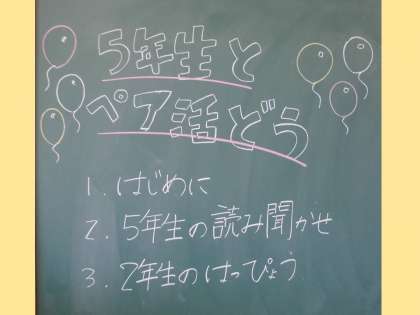 5年生と
ペア活どう
1. はじめに
2. 5年生の読み聞かせ
3. 2年生のはっぴょう